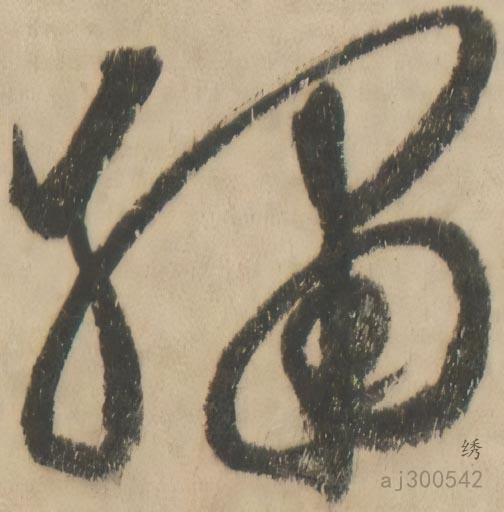 繡
绣
aj300542